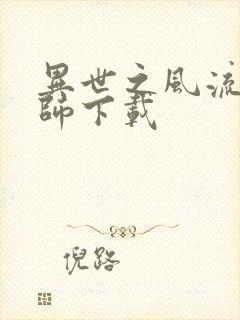 異世之風流
師下載
倪路